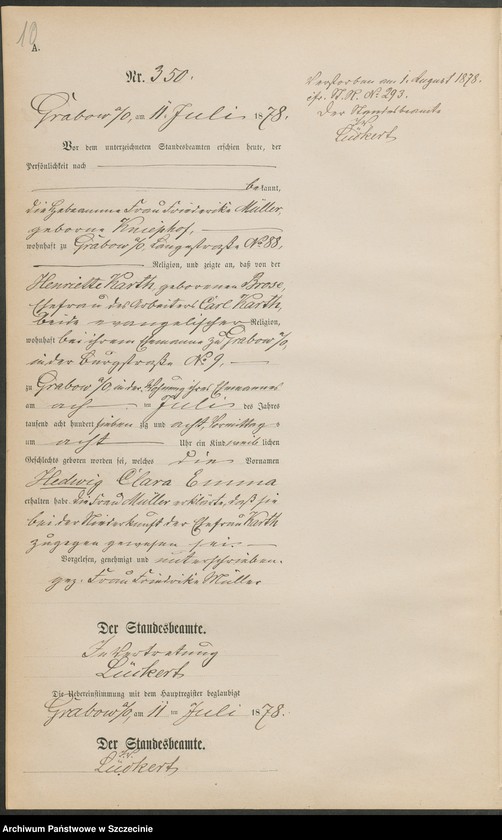 10
A.
Nr. 350.
Grabow a/O, am 11. Juli 1878.
Vor dem unterzeichneten Standesbeamten erschien heute, der
Persönlichkeit nach
bekannt,
die Hebeamme Frau Friederike Müller,
geborene Kniephof,
wohnhaft zu Grabow a/O, Langestraße No 88,
Religion, und zeigte an, daß von der
Henriette Karth, geborenen Brose,
Ehefrau des Arbeiters Carl Karth,
beide evangelischer Religion,
wohnhaft bei ihrem Ehemanne zu Grabow a/O,
in der Burgstraße No 9,
zu Grabow a/O, in der Wohnung ihres Ehemannes
am acht ten Juli des Jahres
tausend acht hundert siebenzig und acht, Vormittags
um acht Uhr ein Kind weiblichen
Geschlechts geboren worden sei, welches die Vornamen
Hedwig Clara Emma
erhalten habe. Die Frau Müller erklärte, daß sie
bei der Niederkunft der Ehefrau Karth
zugegen gewesen sei.
Vorgelesen, genehmigt und unterschrieben.
gez. Frau Friedrike Müller
Der Standesbeamte.
In Vertretung
Lückert
Die Uebereinstimmung mit dem Hauptregister beglaubigt
Grabow a/O, am 11 ten Juli 1878.
Der Standesbeamte.
I.V.
Lückert
Verstorben am 1. August 1878.
cfr. St. R. No. 293.
Der Standesbeamte
I.V.
Lückert
Archiwum Państwowe w Szczecinie